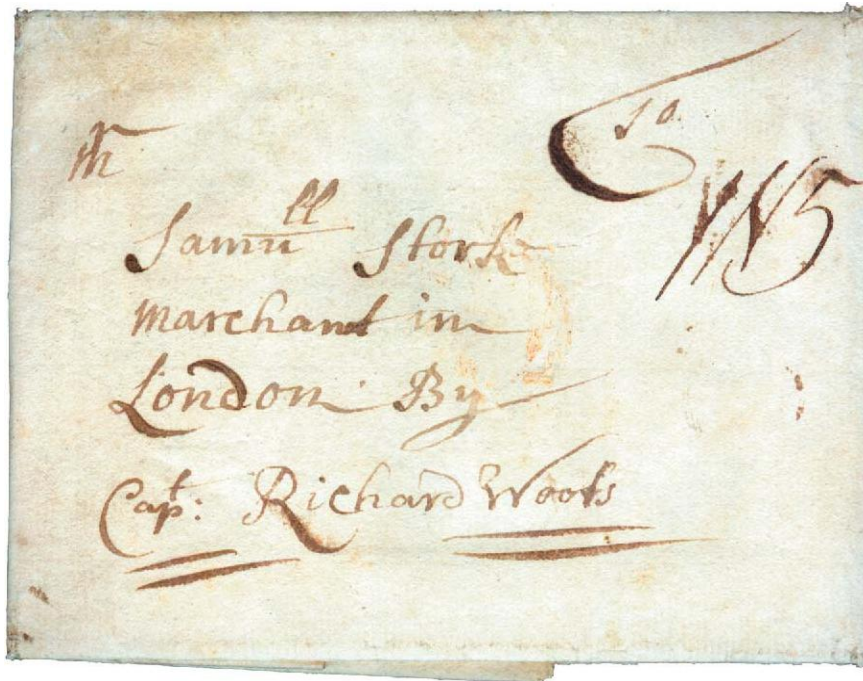 Mr
Samull Stork
Marchant in
London By
Capt: Richard Woots